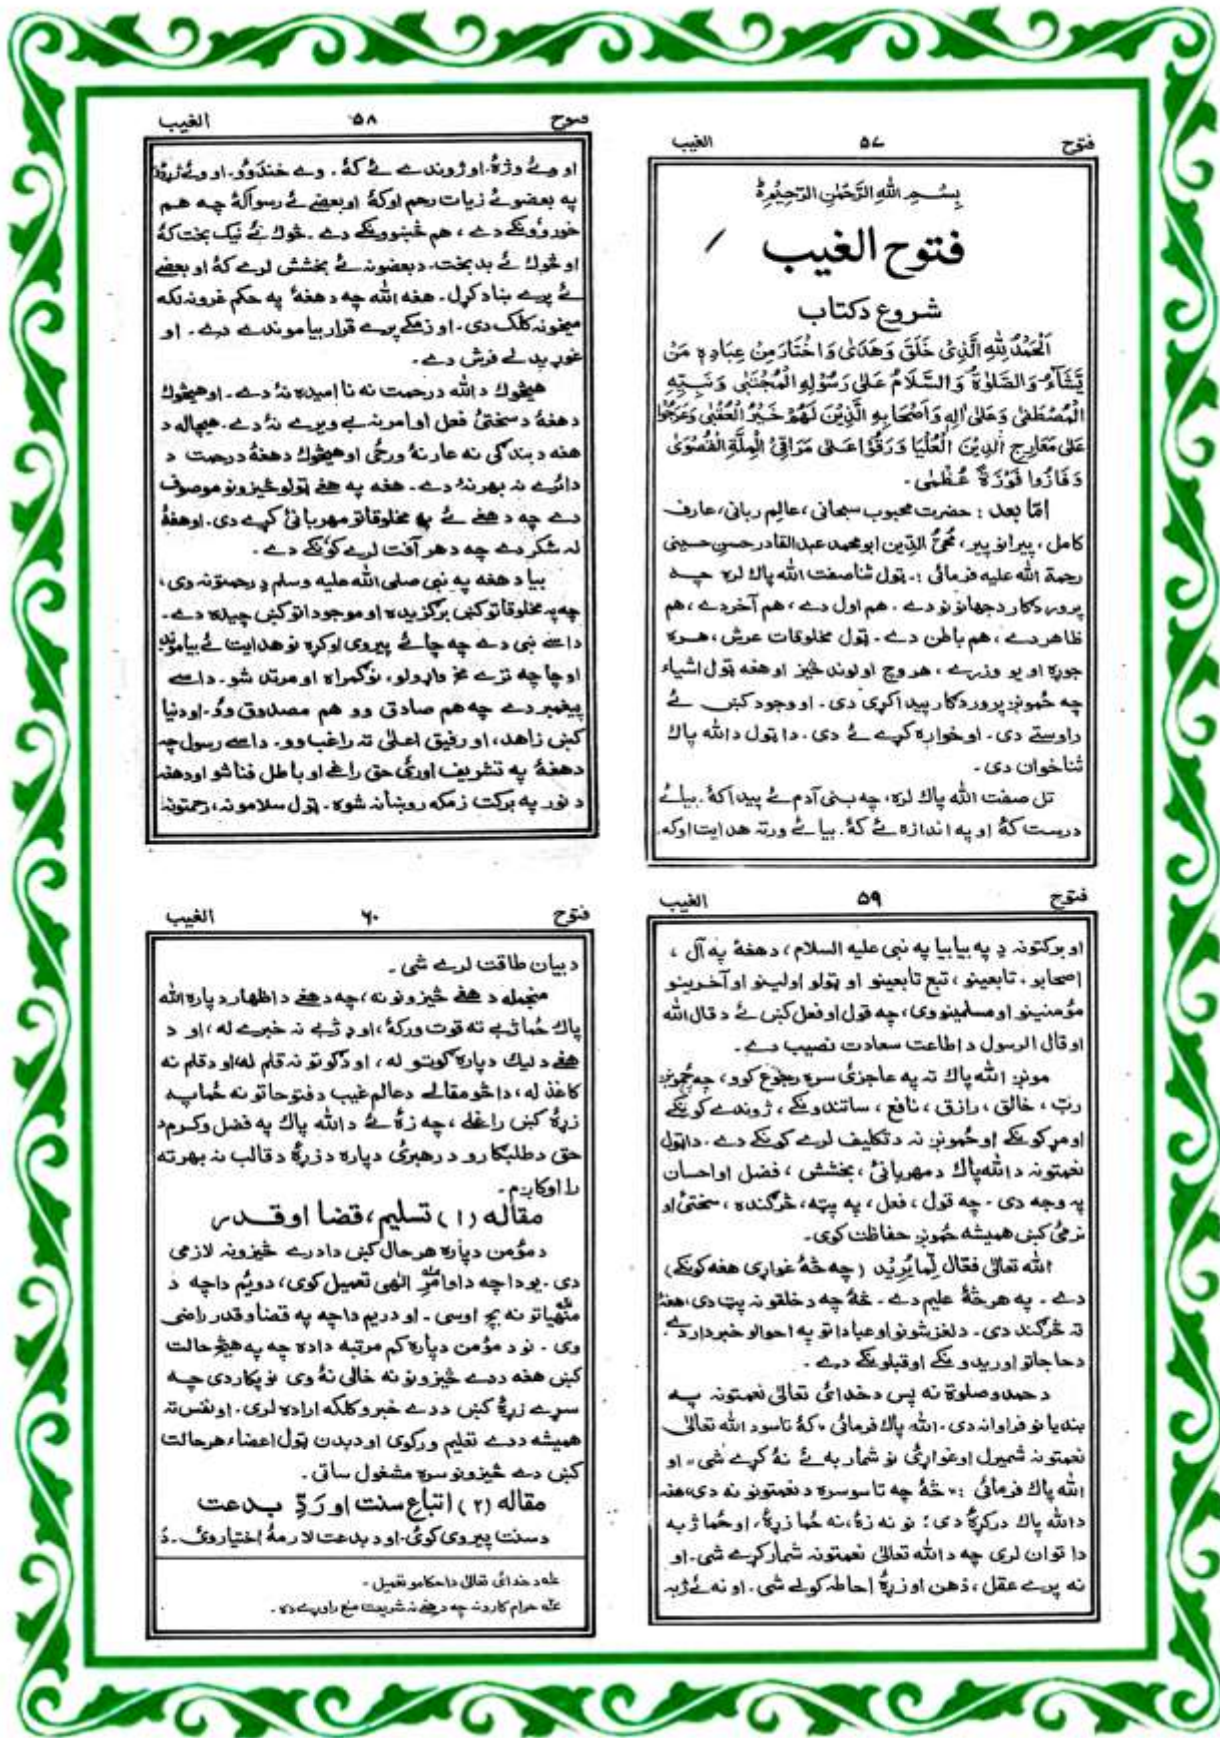 فتوح ۵۷ الغیب
بِسْمِ اللهِ الرَّحْمٰنِ الرَّحِیْمِ
فتوح الغیب
شروع دکتاب
اَلْحَمْدُ لِلّٰهِ الَّذِیْ خَلَقَ وَهَدٰی وَاخْتَارَ مِنْ عِبَادِهٖ مَنْ
یَّشَآءُ وَالصَّلٰوةُ وَالسَّلَامُ عَلٰی رَسُوْلِهِ الْمُجْتَبٰی وَنَبِیِّهِ
الْمُصْطَفٰی وَعَلٰی اٰلِهٖ وَاَصْحَابِهِ الَّذِیْنَ لَهُمْ خَیْرُ الْعُقْبٰی وَعَرَجُوْا
عَلٰی مَعَارِجِ الدِّیْنِ الْعُلْیَا وَرَقُوْا عَلٰی مَرَاقِی الْمِلَّةِ الْقُصْوٰی
وَفَازُوا فَوْزَةً عُظْمٰی۔
امّا بعد : حضرت محبوب سبحانی، عالِم ربانی، عارف
کامل، پیرانو پیر، مُحیُّ الدّین ابومحمد عبدالقادر حسن حسینی
رحمة الله علیه فرمائی :۔ ټول ثنا صفت الله پاك لره چه
پروردکار دجهانونو دے۔ هم اول دے، هم آخر دے، هم
ظاهر دے، هم باطن دے۔ ټول مخلوقات عرش، هره
جوړه او یو وزرے، هر وچ او لوند څیز او هغه ټول اشیاء
چه څمونږ پروردکار پیدا کړی دی۔ او وجود کښ ئے
راوستے دی۔ او خواره کړے ئے دی۔ دا ټول دالله پاك
ثناخوان دی۔
تل صفت الله پاك لره، چه بنی آدم ئے پیدا کۀ۔ بیائے
درست کۀ او په اندازه ئے کۀ۔ بیا ئے ورته هدایت اوکه
فتوح ۵۸ الغیب
او وے وژۀ۔ او ژوندے ئے کۀ۔ وے خندوو۔ او وے
په بعضو ئے زیات رحم اوکۀ او بعضے ئے رسوا کۀ چه هم
خوروونکے دے، هم څښوونکے دے۔ څوك ئے نیک بخت کۀ
او څوك ئے بدبخت۔ دبعضو نه ئے بخشش لرے کۀ او بعضے
ئے پرے بناد کړل۔ هغه الله چه دهغۀ په حکم غرونه لکه
میخونه کلک دی۔ او زمکے پرے قرار بیا موندے دے۔ او
غوړیدلے فرش دے۔
هیڅوك دالله درحمت نه ناامیده نۀ دے۔ او هیڅوك
دهغۀ دسختئ فعل او امر نه بے ویرے نۀ دے۔ هیچاله د
هغه دبندکی نه عار نۀ ورځی او هیڅوك دهغۀ درحمت د
دائرے نه بهر نۀ دے۔ هغه په هغے ټولو څیزونو موصوف
دے چه دهغے ئے په مخلوقاتو مهربانی کړے دی۔ او هغۀ
له شکر دے چه دهر آفت لرے کوونکے دے۔
بیا دهغه په نبی صلی الله علیه وسلم د رحمتونه دی،
چه په مخلوقاتو کښ برکزیده او موجوداتو کښ چیده دے۔
داسے نبی دے چه چائے پیروی اوکړه نو هدایت ئے بیاموند
او چا چه ترے مخ واړولو، نو کمراه او مرتد شو۔ داسے
پیغمبر دے چه هم صادق وو هم مصدوق وو۔ او دنیا
کښ زاهد، او رفیق اعلیٰ ته راغب وو۔ داسے رسول چه
دهغۀ په تشریف اورئ حق راغے او باطل فنا شو او دهغه
د نور په برکت زمکه روښانه شوه۔ ټول سلامونه، رحمتونه
فتوح ۵۹ الغیب
او برکتونه د په بیا بیا په نبی علیه السلام، دهغۀ په آل،
اصحابو، تابعینو، تبع تابعینو او ټولو اولینو او آخرینو
مؤمنینو او مسلمینو وی، چه قول او فعل کښ ئے د قال الله
او قال الرسول د اطاعت سعادت نصیب دے۔
مونږ الله پاك ته په عاجزئ سره رجوع کوو، چه څمونږ
ربّ، خالق، رازق، نافع، ساتندوکے، ژوندے کوونکے
او مړ کوونکے او څمونږ نه دتکلیف لرے کوونکے دے۔ دا ټول
نعمتونه دالله پاك دمهربانئ، بخشش، فضل او احسان
په وجه دی۔ چه قول، فعل، په پټه، څرکنده، سختئ او
نرمئ کښ همیشه څمونږ حفاظت کوی۔
الله تعالٰی فَعَّالٌ لِّمَا یُرِیْدُ (چه څۀ غواړی هغه کوونکے)
دے۔ په هر څۀ علیم دے۔ څۀ چه دخلقو نه پټ دی، هغۀ
ته څرکند دی۔ دلغزشونو او عباداتو په احوالو خبردار دے۔
دحاجاتو اوریدونکے او قبلونکے دے۔
دحمد وصلوٰة نه پس دخدائ تعالیٰ نعمتونه په
بندیانو فراوانه دی۔ الله پاك فرمائی "کۀ تاسو د الله تعالیٰ
نعمتونه شمیرل اوغواړئ نو شمار به ئے نۀ کړے شی" او
الله پاك فرمائی :" څۀ چه تاسو سره د نعمتونو نه دی، هغه
دالله پاك درکړۀ دی؛ نو نه زۀ، نه څما زړۀ، او څما ژبه
دا توان لری چه دالله تعالیٰ نعمتونه شمار کړے شی۔ او
نه پرے عقل، ذهن او زړۀ احاطه کولے شی۔ او نه ئے ژبه
فتوح ۶۰ الغیب
د بیان طاقت لرے شی۔
منجمله دهغے څیزونو نه، چه دهغے داظهار دپاره الله
پاك څما ژبے ته قوت ورکۀ، او د ژبے نه خبرے له، او د
هغے دلیك دپاره کوتو له، او دکوتو نه قلم له، او دقلم نه
کاغذ له، دا څو مقالے دعالم غیب دفتوحاتو نه څما په
زړۀ کښ راغلے، چه زۀ ئے دالله پاك په فضل وکرم د
حق دطلبکارو د رهبرئ دپاره دزړۀ دقالب نه بهر ته
را اوکاږم۔
مقاله (۱) تسلیم، قضا او قدر
دمؤمن دپاره هر حال کښ دا درے څیزونه لازمی
دی۔ یو دا چه د اوامر الٰهی تعمیل کوی، دویُم دا چه د
منهیاتو نه بچ اوسی۔ او دریم دا چه په قضا وقدر راضی
وی۔ نو د مؤمن دپاره کم مرتبه داده چه په هیڅ حالت
کښ هغه ددے څیزونو نه خالی نۀ وی نو پکار دی چه
سړے زړۀ کښ ددے خبرو کلکه اراده لری۔ او نفس ته
همیشه ددے تعلیم ورکوی او دبدن ټول اعضاء هر حالت
کښ دے څیزونو سره مشغول ساتی۔
مقاله (۲) اتباعِ سنت او رَدِّ بدعت
دسنت پیروی کوئ۔ او د بدعت لار مۀ اختیاروئ۔ دَ
عله دخدائ تعالیٰ داحکامو تعمیل۔
عله حرام کارونه چه دهغے نه شریعت منع راوړے ده۔